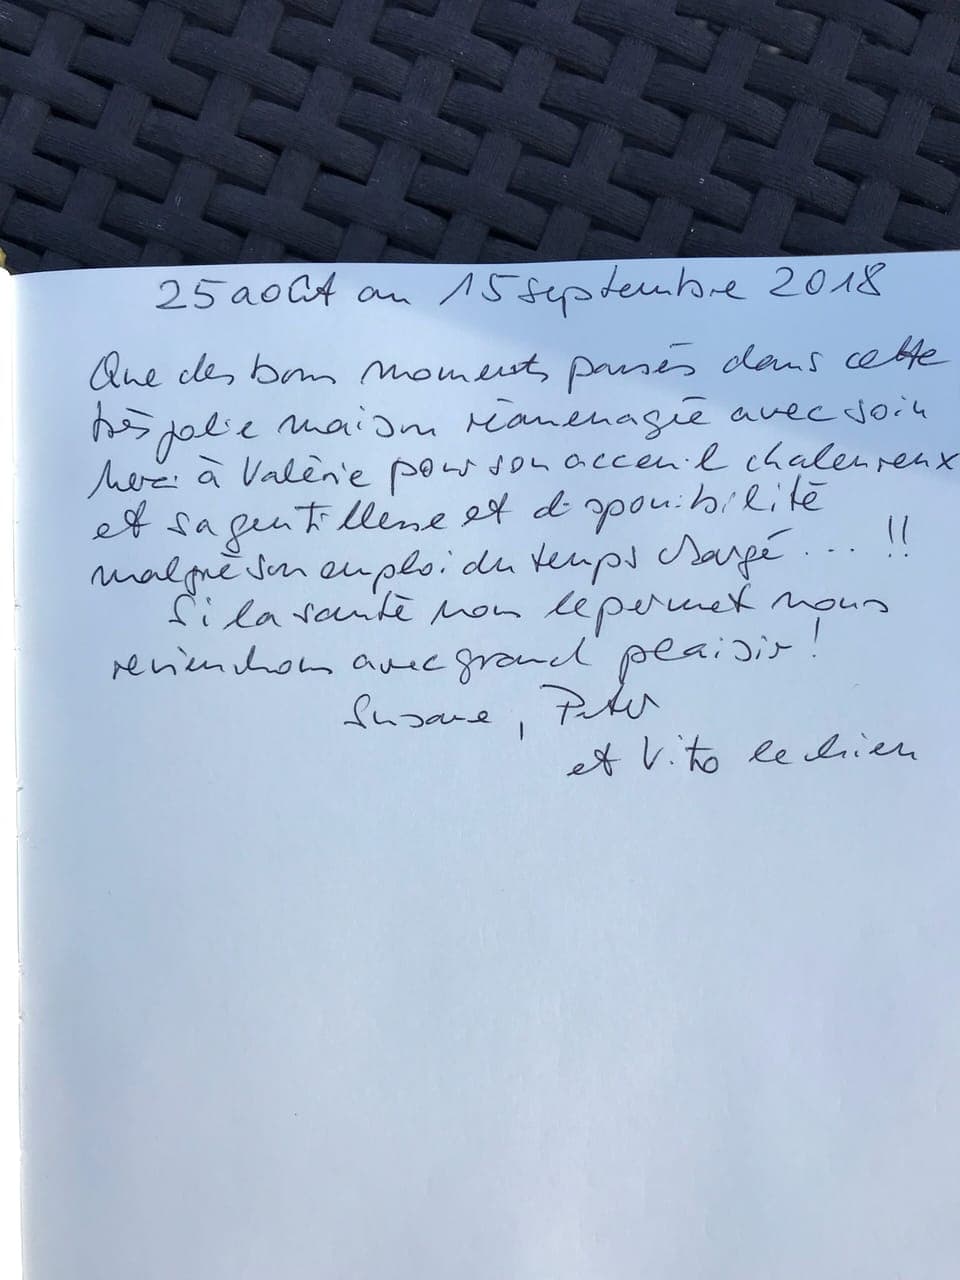 25 août au 15 septembre 2018
Que des bons moments passés dans cette
très jolie maison réamenagée avec soin
Merci à Valérie pour son acceuil chaleureux
et sa gentillesse et disponibilité
malgré son emploi du temps chargé ... !!
Si la santé nous le permet nous
reviendrons avec grand plaisir !
Susane, Peter
et Vito le chien